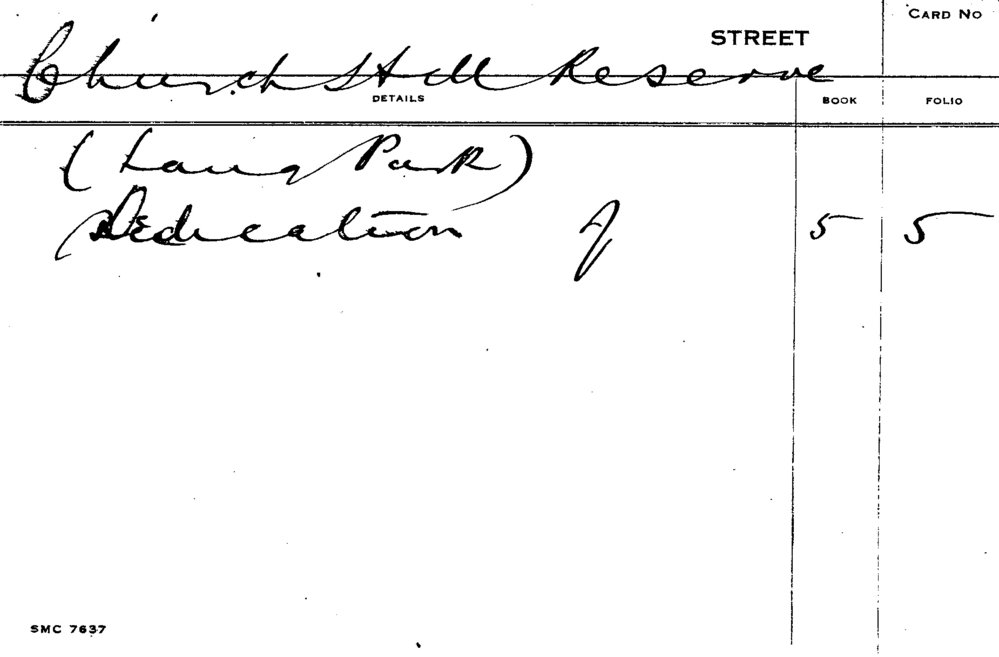 CARD NO
STREET
Church Hill Reserve
DETAILS BOOK FOLIO
(Lang Park)
Dedication of 5 5
SMC 7637